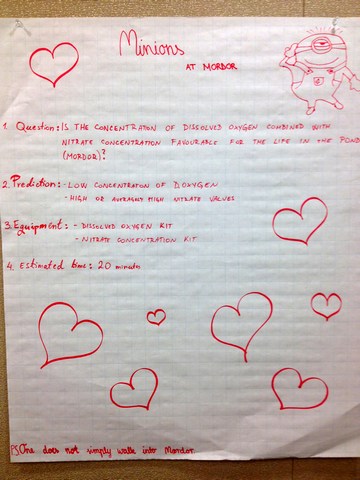 Minions
AT MORDOR
1. Question: IS THE CONCENTRATION OF DISSOLVED OXYGEN COMBINED WITH
NITRATE CONCENTRATION FAVOURABLE FOR THE LIFE IN THE POND
(MORDOR)?
2. Prediction: - LOW CONCENTRATION OF DOXYGEN
- HIGH OR AVERAGELY HIGH NITRATE VALUES
3. Equipment: - DISSOLVED OXYGEN KIT
- NITRATE CONCENTRATION KIT
4. Estimated time: 20 minutes
PS One does not simply walk into Mordor.